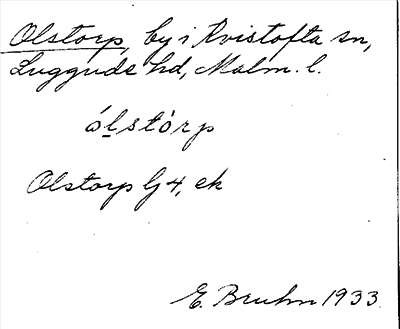 Olstorp, by i Kvistofta sn,
Luggude hd, Malm. l.
ólstòrp
Olstorp lj 4, ek
E. Bruhn 1933